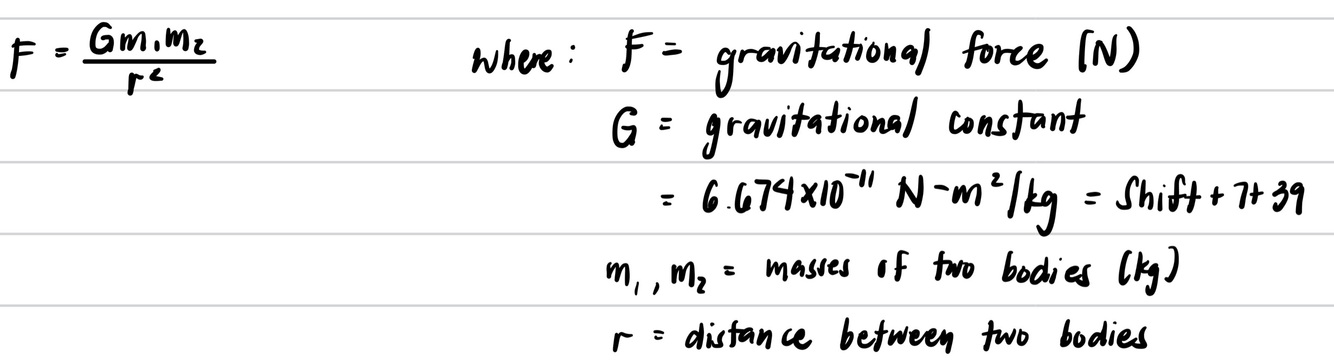 F = Gm₁m₂/r² where: F = gravitational force (N)
G = gravitational constant
= 6.674×10⁻¹¹ N-m²/kg = Shift + 7 + 39
m₁, m₂ = masses of two bodies (kg)
r = distance between two bodies